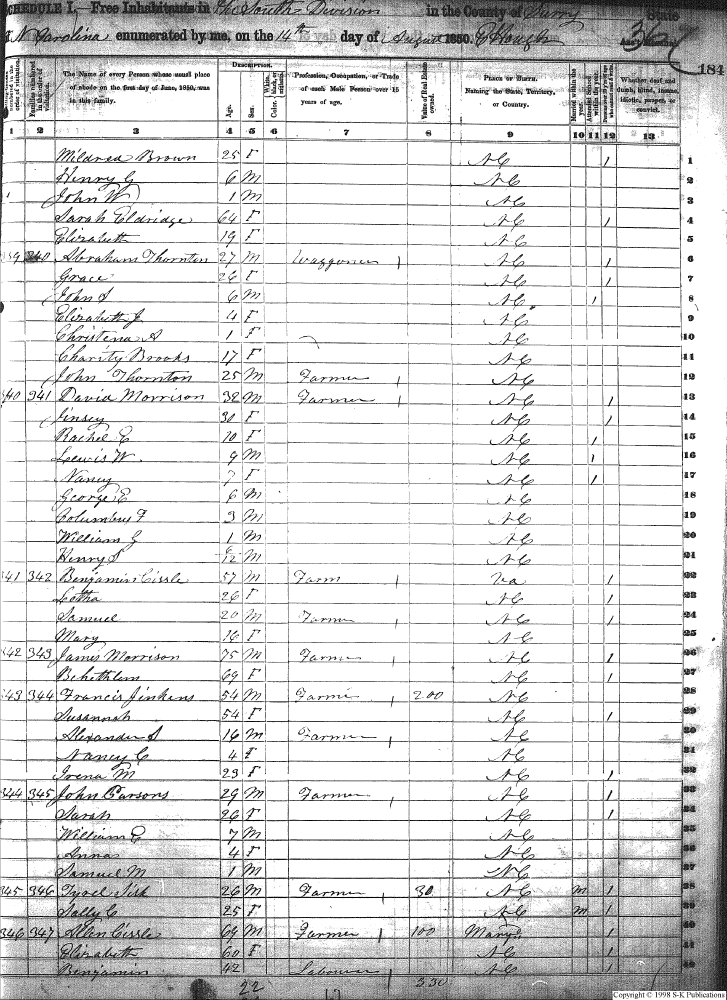 SCHEDULE I.—Free Inhabitants in the South Division in the County of Surry State
N Carolina enumerated by me, on the 14th day of August 1850. 367
184
DESCRIPTION.
The Name of every Person whose usual place of abode on the first day of June, 1850, was in this family.
Age.
Sex.
Color. White, black, or mulatto.
Profession, Occupation, or Trade of each Male Person over 15 years of age.
Value of Real Estate owned.
PLACE OF BIRTH. Naming the State, Territory, or Country.
Married within the year.
Whether deaf and dumb, blind, insane, idiotic, pauper, or convict.
1 2 3 4 5 6 7 8 9 10 11 12 13
Mildred Brown 25 F NC / 1
Henry G 6 M NC 2
John W 1 M NC 3
Sarah Eldridge 64 F NC / 4
Elizabeth 19 F NC 5
39 340 Abraham Thornton 27 M Waggoner / NC / 6
Grace 26 F NC / 7
John S 6 M NC / 8
Elizabeth J 4 F NC 9
Christena A 1 F NC 10
Charity Brooks 17 F NC 11
John Thornton 25 M Farmer / NC 12
340 341 David Morrison 32 M Farmer / NC / 13
Jinsey 30 F NC / 14
Rachel E 10 F NC / 15
Lewis W. 9 M NC / 16
Nancy 7 F NC / 17
George E 6 M NC 18
Columbus F 3 M NC 19
William G 1 M NC 20
Henry S 6/12 M NC 21
341 342 Benjamin Cissle 57 M Farm / Va / 22
Letha 26 F NC / 23
Samuel 20 M Farmer / NC / 24
Mary 16 F NC 25
342 343 James Morrison 75 M Farmer / NC / 26
Behethlem 69 F NC / 27
343 344 Francis Jinkans 54 M Farmer 200 NC 28
Susannah 54 F NC / 29
Alexander S 16 M Farmer / NC 30
Nancy C 4 F NC 31
Irena M 23 F NC / 32
344 345 John Parsons 29 M Farmer / NC / 33
Sarah 26 F NC / 34
William E 7 M NC 35
Anna 4 F NC 36
Samuel M 1 M NC 37
345 346 Tyrel Sisk 26 M Farmer / 30 NC M / 38
Sally C 25 F NC M / 39
346 347 Allen Cissle 64 M Farmer / 100 Maryd. / 40
Elizabeth 60 F NC /
Benjamin 42 Labourer / NC /
22 330
Copyright © 1998 S-K Publications